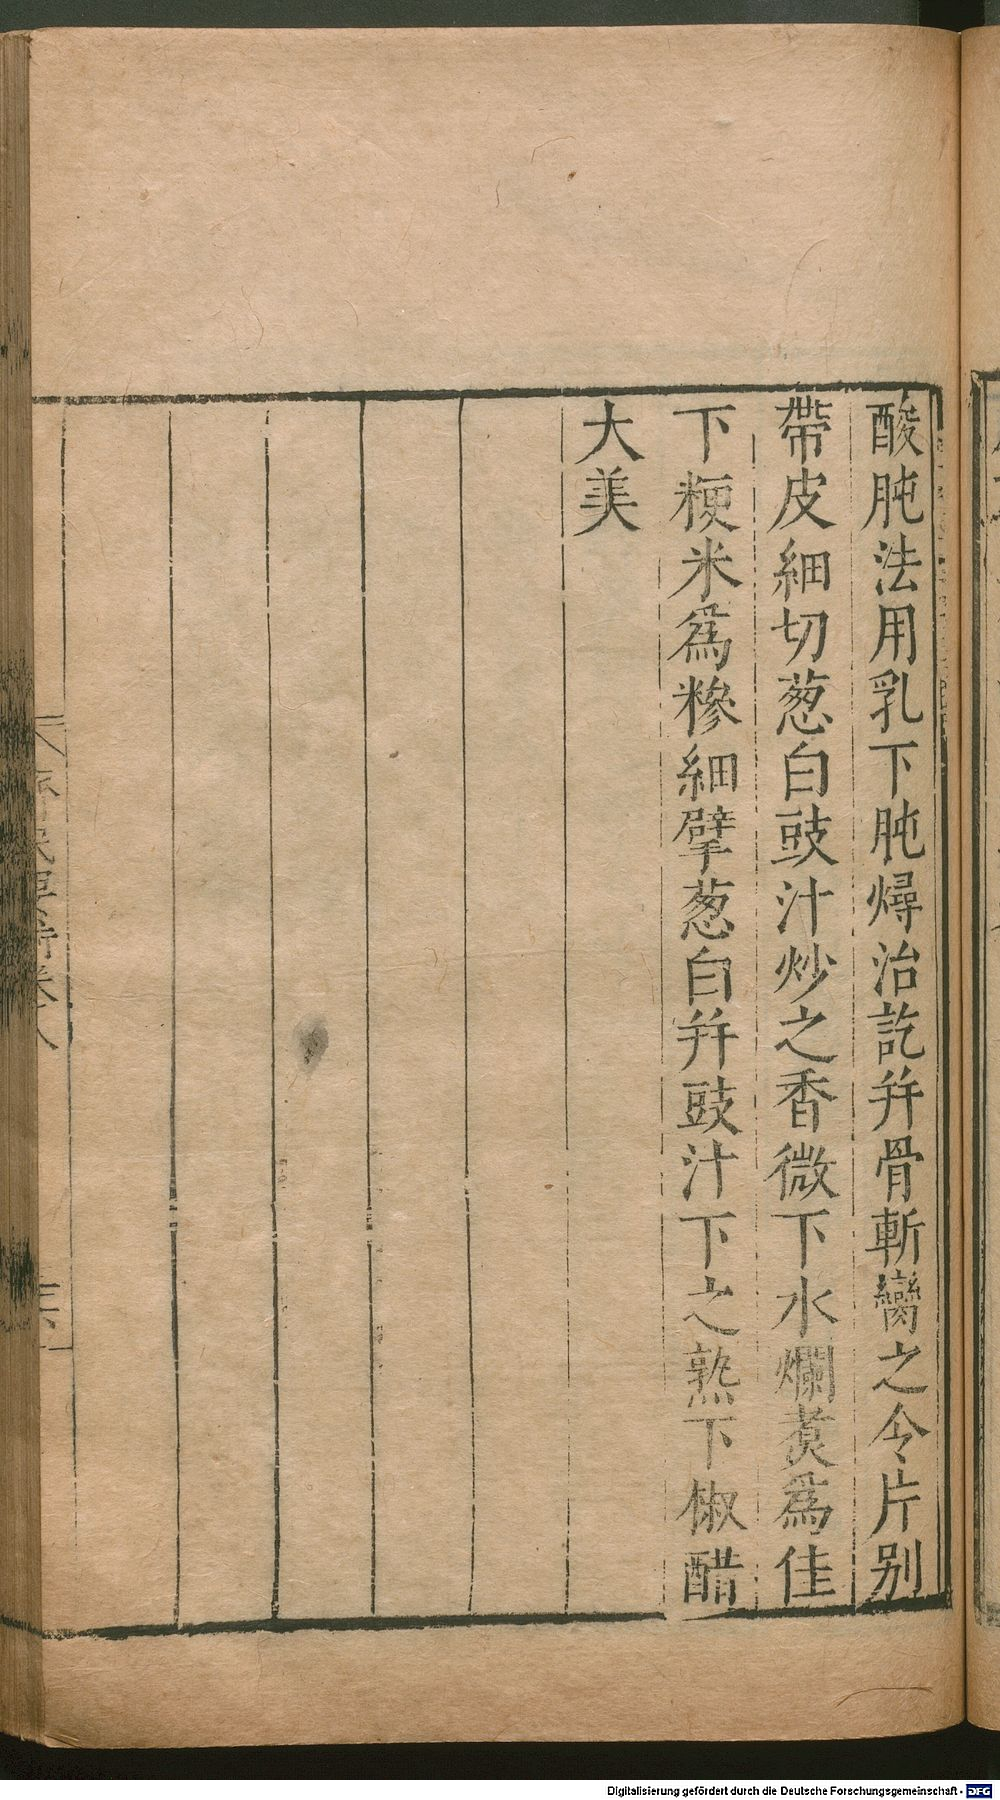 酸肫法用乳下肫燖治訖并骨斬臠之令片别
帶皮細切葱白豉汁炒之香微下水爛煑爲佳
下粳米爲糝細擘葱白并豉汁下之熟下椒醋
大美
Digitalisierung gefördert durch die Deutsche Forschungsgemeinschaft - DFG